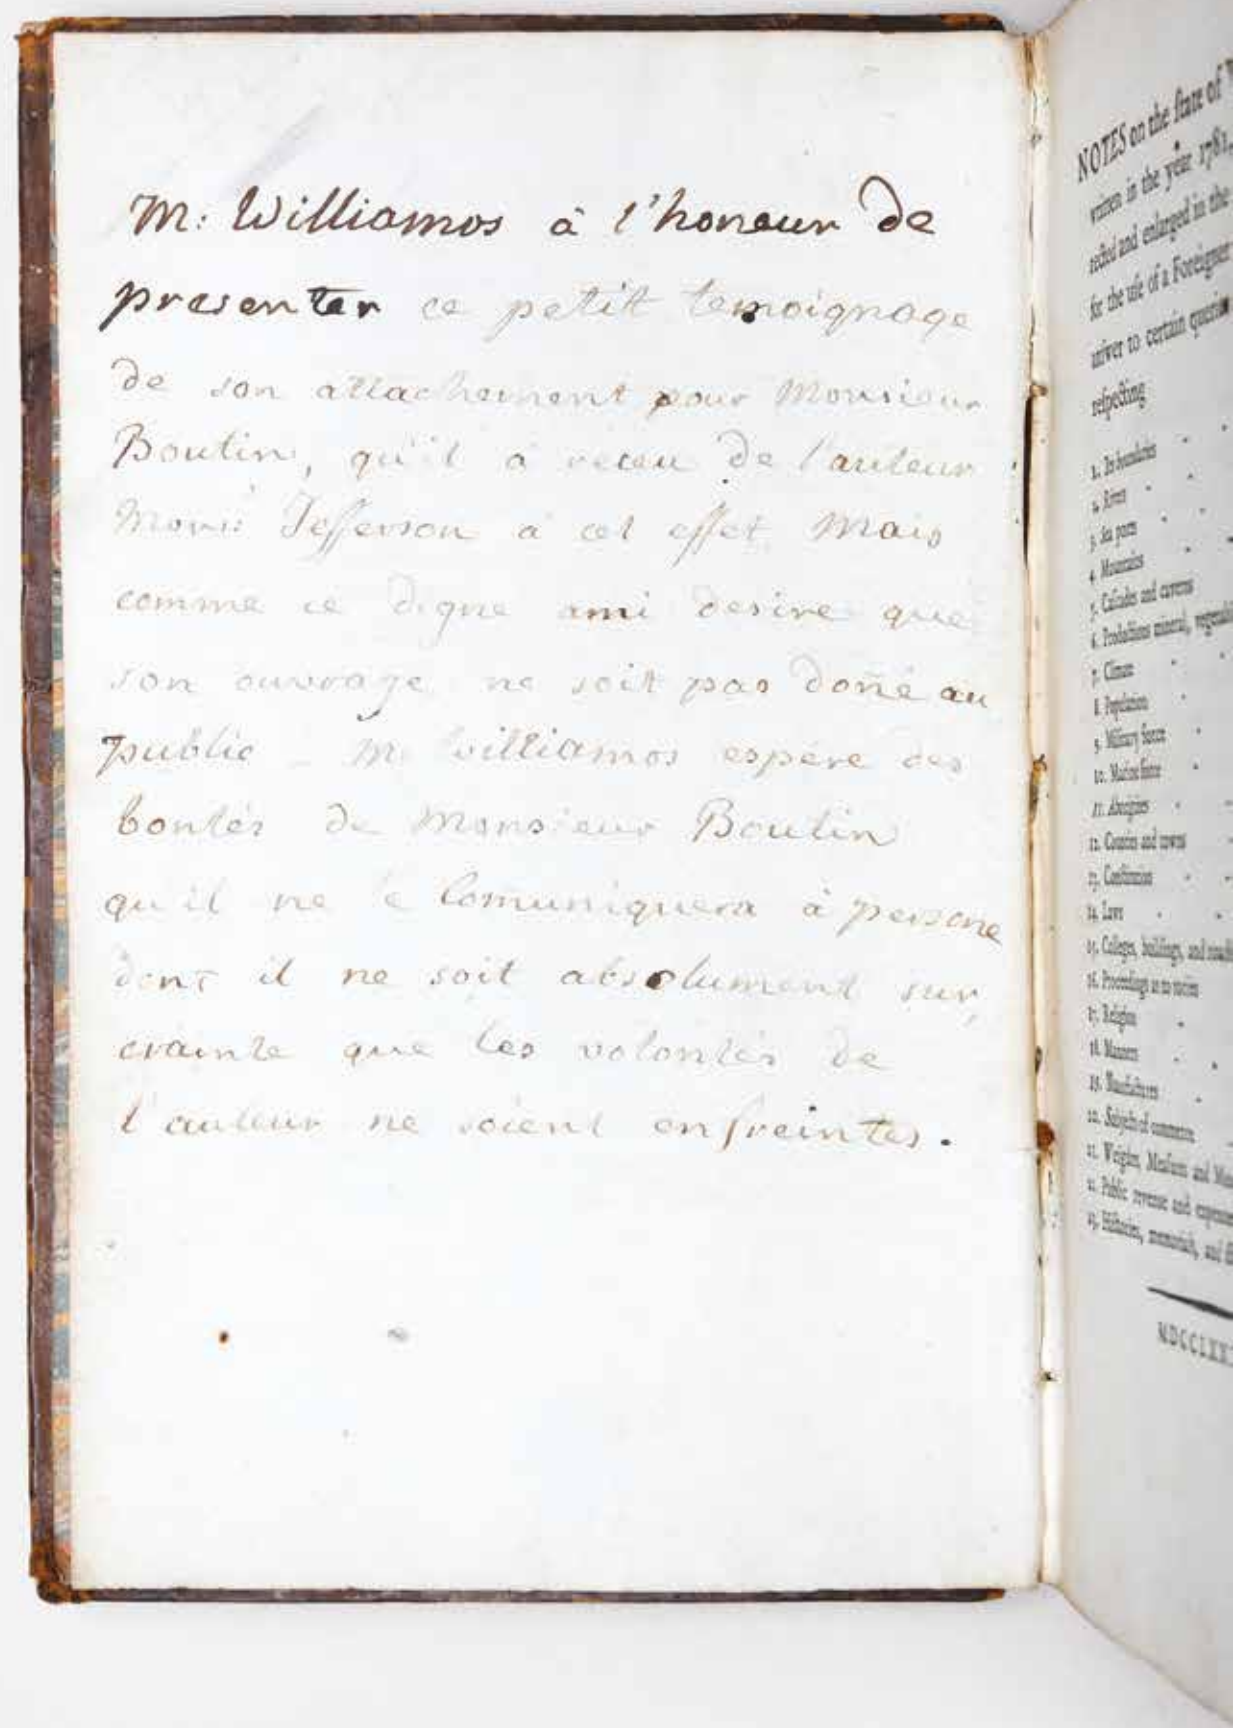 M: Williamos à l'honeur de
presenter ce petit temoignage
de son attachement pour Monsieur
Boutin, qu'il a receu de l'auteur
Monsr: Jefferson à cet effet Mais
comme ce digne ami desire que
son ouvrage ne soit pas doñé au
public _ M: Williamos espère des
bontés de Monsieur Boutin
qu'il ne le Comuniquera à persone
dont il ne soit absolument sur,
crainte que les volontés de
l'auteur ne soient enfreintes.
NOTES on the state of
written in the year 1781,
rected and enlarged in the
for the use of a Foreigner
answer to certain queries
respecting
1. Its boundaries
2. Rivers
3. Sea ports
4. Mountains
5. Cascades and caverns
6. Productions mineral,
7. Climate
8. Population
9. Military force
10. Marine force
11. Aborigines
12. Counties and towns
13. Constitution
14. Laws
15. Colleges, buildings, and
16. Proceedings as to tories
17. Religion
18. Manners
19. Manufactures
20. Subjects of commerce
21. Weights, Measures and
22. Public revenue and
23. Histories, memorials, and
MDCCLXX